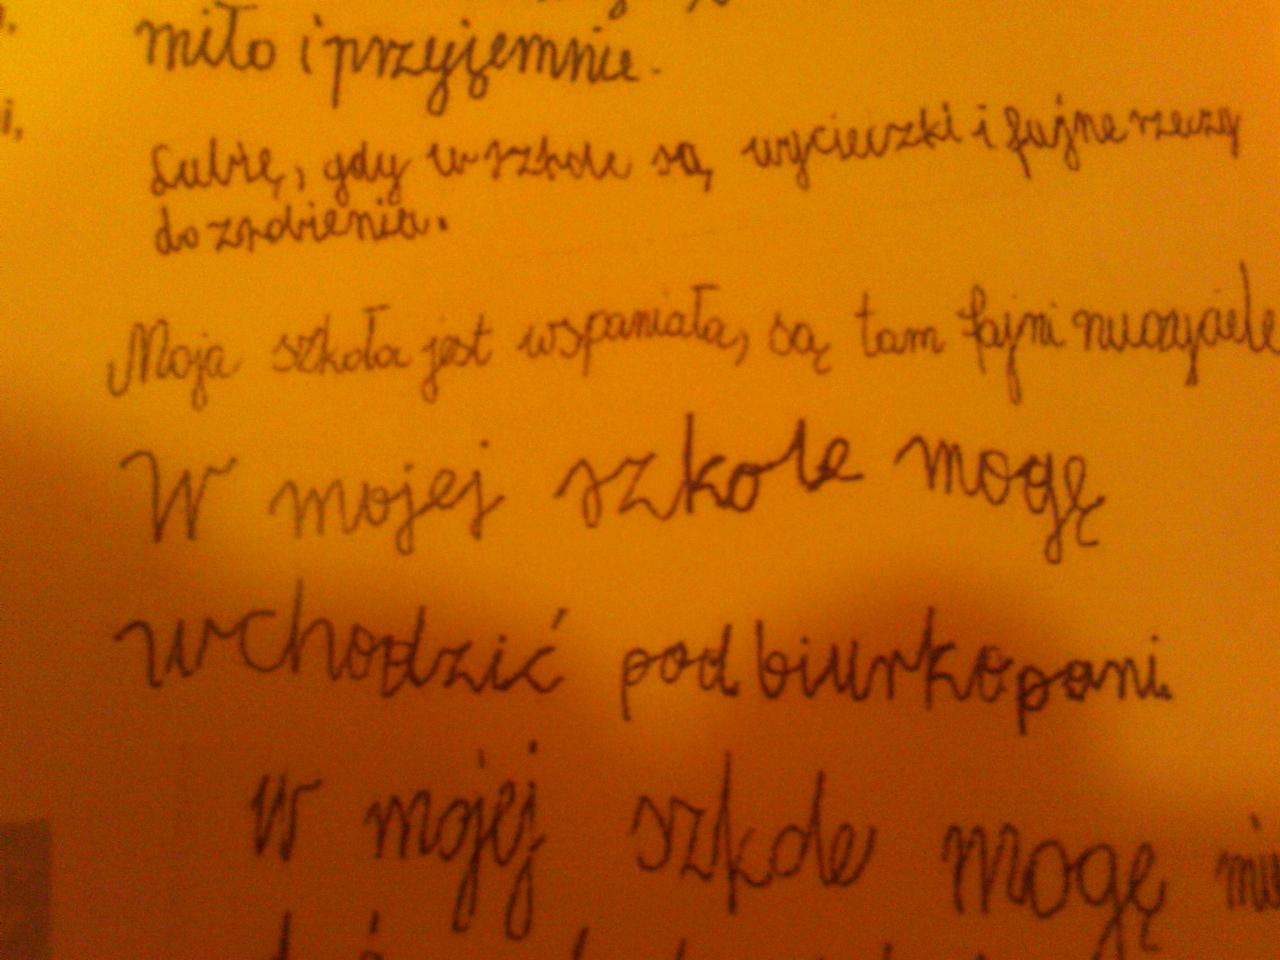 i,
miło i przyjemnie.
Lubię, gdy w szkole są wycieczki i fajne rzeczy
do zrobienia.
Moja szkoła jest wspaniała, są tam fajni nuczyciele
W mojej szkole mogę
wchodzić pod biurko pani.
W mojej szkole mogę